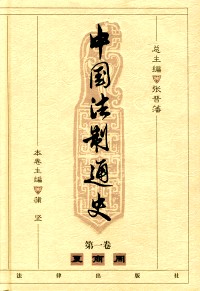 中国法制通史
总主编 张晋藩
本卷主编 蒲坚
第一卷
夏商周
法律出版社